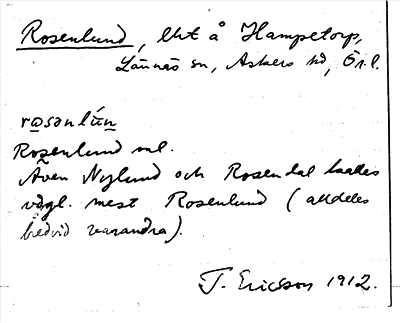 Rosenlund, lht å Hampetorp,
Lännäs sn, Askers hd, Ör. l.
rɷsənlún
Rosenlund ml.
Även Nylund och Rosendal kallas
vdgl. mest Rosenlund (alldeles
bredvid varandra).
T. Ericsson 1912.